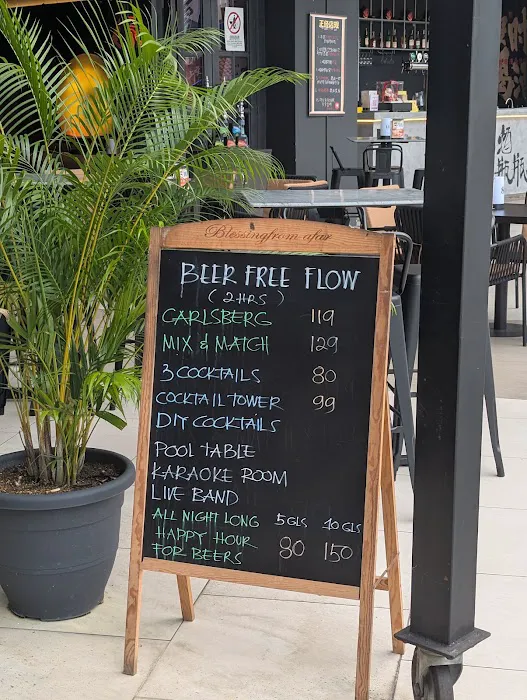 Blessingfrom afar
BEER FREE FLOW
( 2HRS )
CARLSBERG 119
MIX & MATCH 129
3 COCKTAILS 80
COCKTAIL TOWER 99
DIY COCKTAILS
POOL TABLE
KARAOKE ROOM
LIVE BAND
ALL NIGHT LONG 5GLS 10GLS
HAPPY HOUR 80 150
FOR BEERS